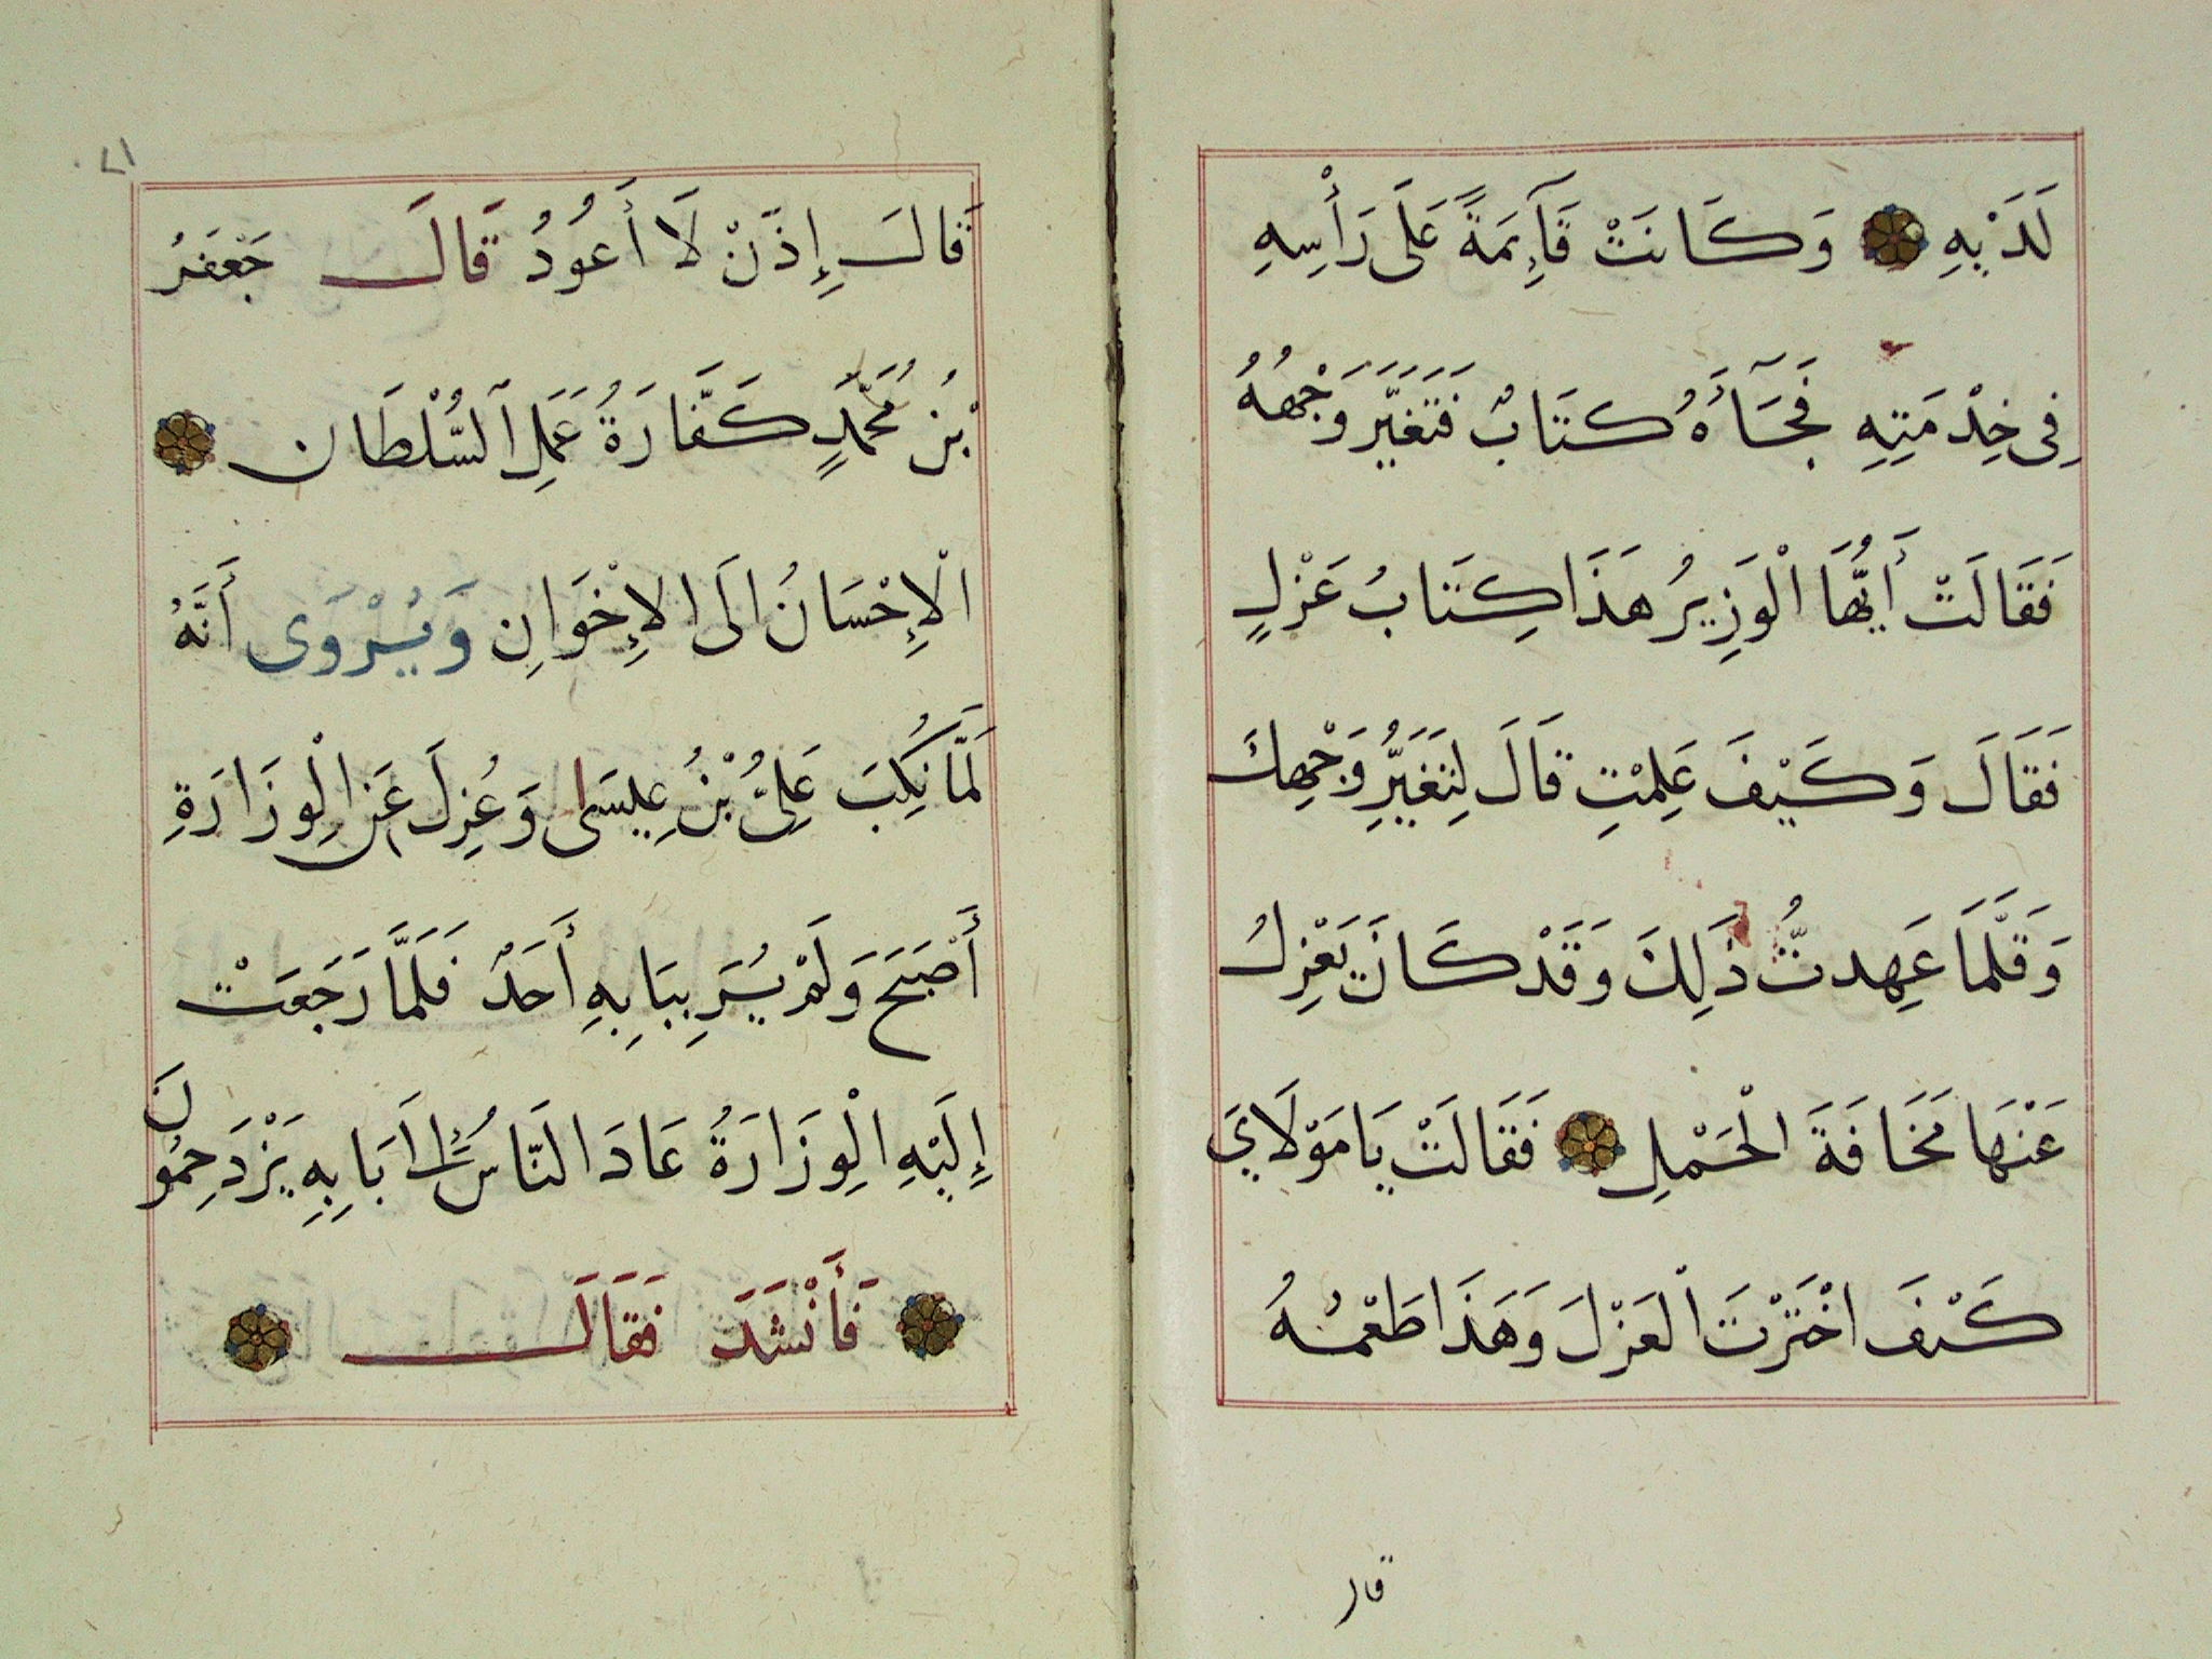 لَدَيْهِ وَكَانَتْ قَآئِمَةً عَلَى رَأْسِهِ
فِى خِدْمَتِهِ فَجَآءَهُ كتَابٌ فَتَغيَّرَ وَجْهُهُ
فَقَالَتْ أَيُّهَا الْوَزِيرُ هَذَا كِتَابُ عَزْلٍ
فَقَالَ وَكَيْفَ عَلِمْتِ قَالَ لِتَغَيُّرِ وَجْهِكَ
وَقَلَّمَا عَهِدتُّ ذَلِكَ وَقَدْ كَانَ يَعْزِلُ
عَنْهَا مَخَافَةَ الْحَمْلِ فَقَالَتْ يَا مَوْلَايَ
كَيْفَ اخْتَرْتَ الْعَزْلَ وَهَذَا طَعْمُهُ
قال
٢١
قَالَ إِذَنْ لَا أَعُودُ قَالَ جَعْفَرُ
بْنُ مُحَمَّدٍ كَفَّارَةُ عَمَلِ السُّلْطَان
الْإِحْسَانُ الَى الإِخْوَانِ وَيُرْوَى أَنَّهُ
لَمَّا نُكِبَ عَلِىُّ بْنُ عِيسَى وَعُزِلَ عَن الْوِزَارَةِ
أَصْبَحَ وَلَمْ يُرَ بِبَابِهِ أَحَدٌ فَلَمَّا رَجَعَتْ
إِلَيْهِ الْوِزَارَةُ عَادَ النَّاسُ إِلَى بَابِهِ يَزْدَحِمُونَ
فَأَنْشَدَ فَقَالَ